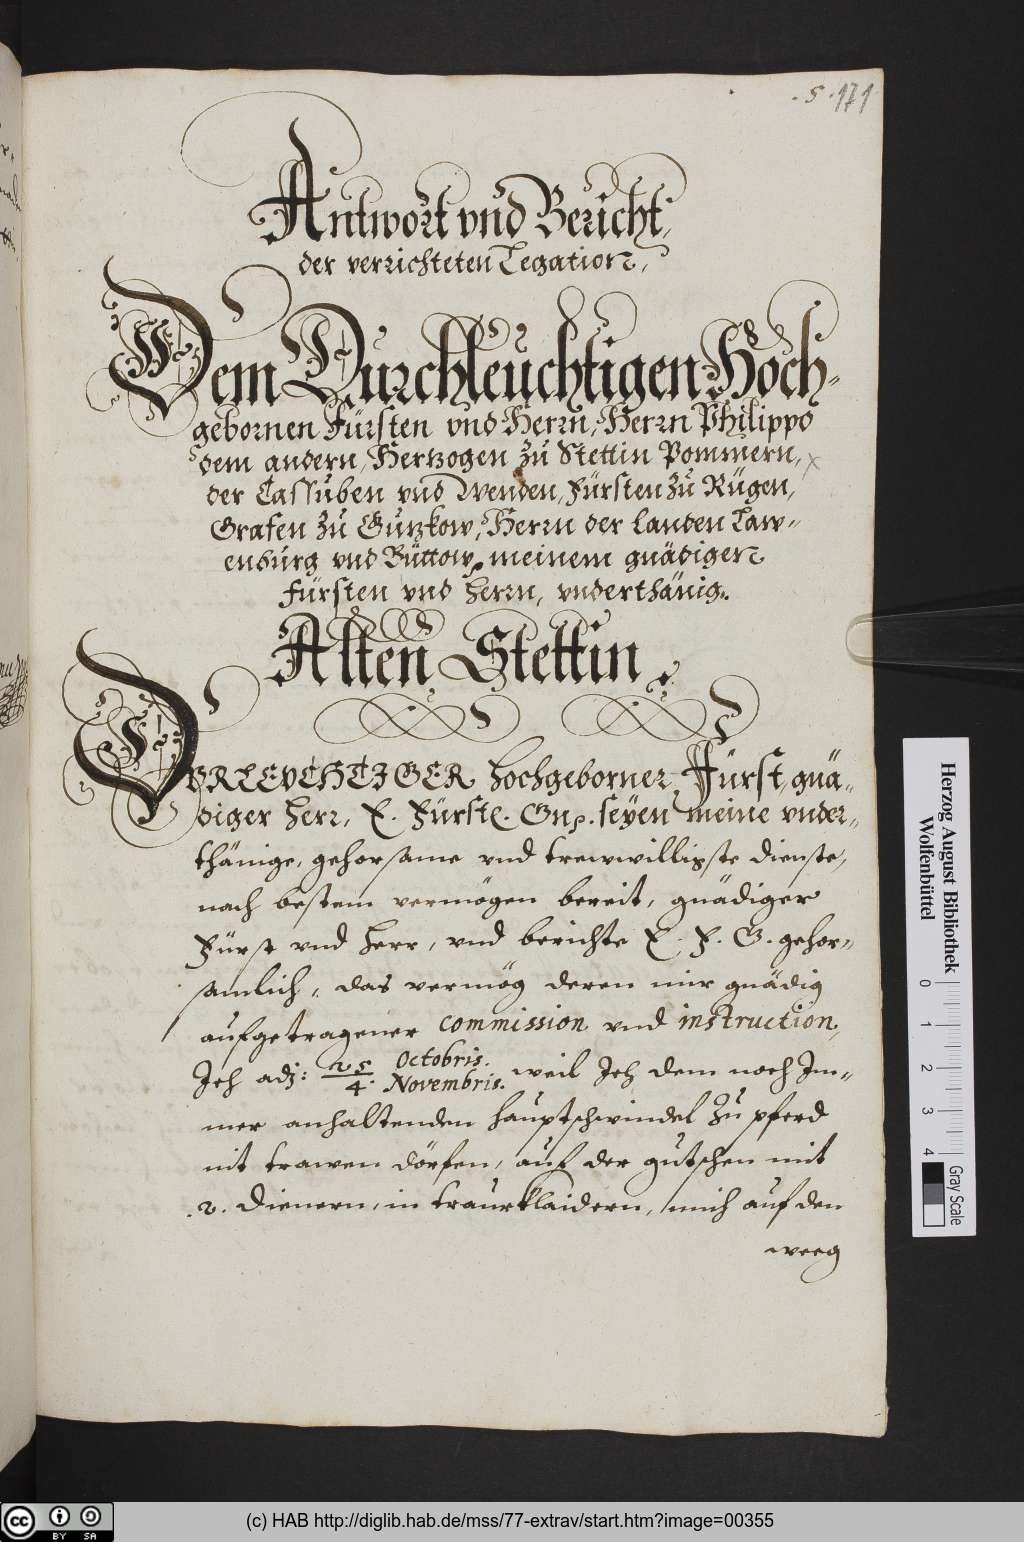 . 5 . 171
Antwort vnd Bericht,
der verrichteten Legation,
Dem Durchleuchtigen Hoch-
gebornen Fürsten vnd Herrn, Herrn Philippo
dem andern, Hertzogen zu Stettin Pommern,
der Cassuben vnd Wenden, Fürsten zu Rügen,
Grafen zu Gutzkow, Herrn der Landen Law-
enburg vnd Büttow, meinem gnädigen
Fürsten vnd Herrn, vnderthänig.
Alten Stettin.
DVRLEVCHTIGER hochgeborner Fürst, gnä-
diger Herr, E. Fürstl. Gn. seyen meine vnder-
thänige, gehorsame vnd trewwilligste dienste,
nach bestem vermögen bereit, gnädiger
Fürst vnd Herr, vnd berichte E. F. G. gehor-
samlich, das vermög deren mir gnädig
aufgetragener commission vnd instruction,
Ich adj: 25 Octobris.
4. Novembris. weil Ich dem noch Im-
mer anhaltenden hauptschwindel zu pferd
nit trawen dörfen, auf der gutschen mit
2. Dienern, in traurklaidern, mich auf den
weeg
Herzog August Bibliothek
Wolfenbüttel
0 1 2 3 4
Gray Scale
cc BY SA
(c) HAB http://diglib.hab.de/mss/77-extrav/start.htm?image=00355